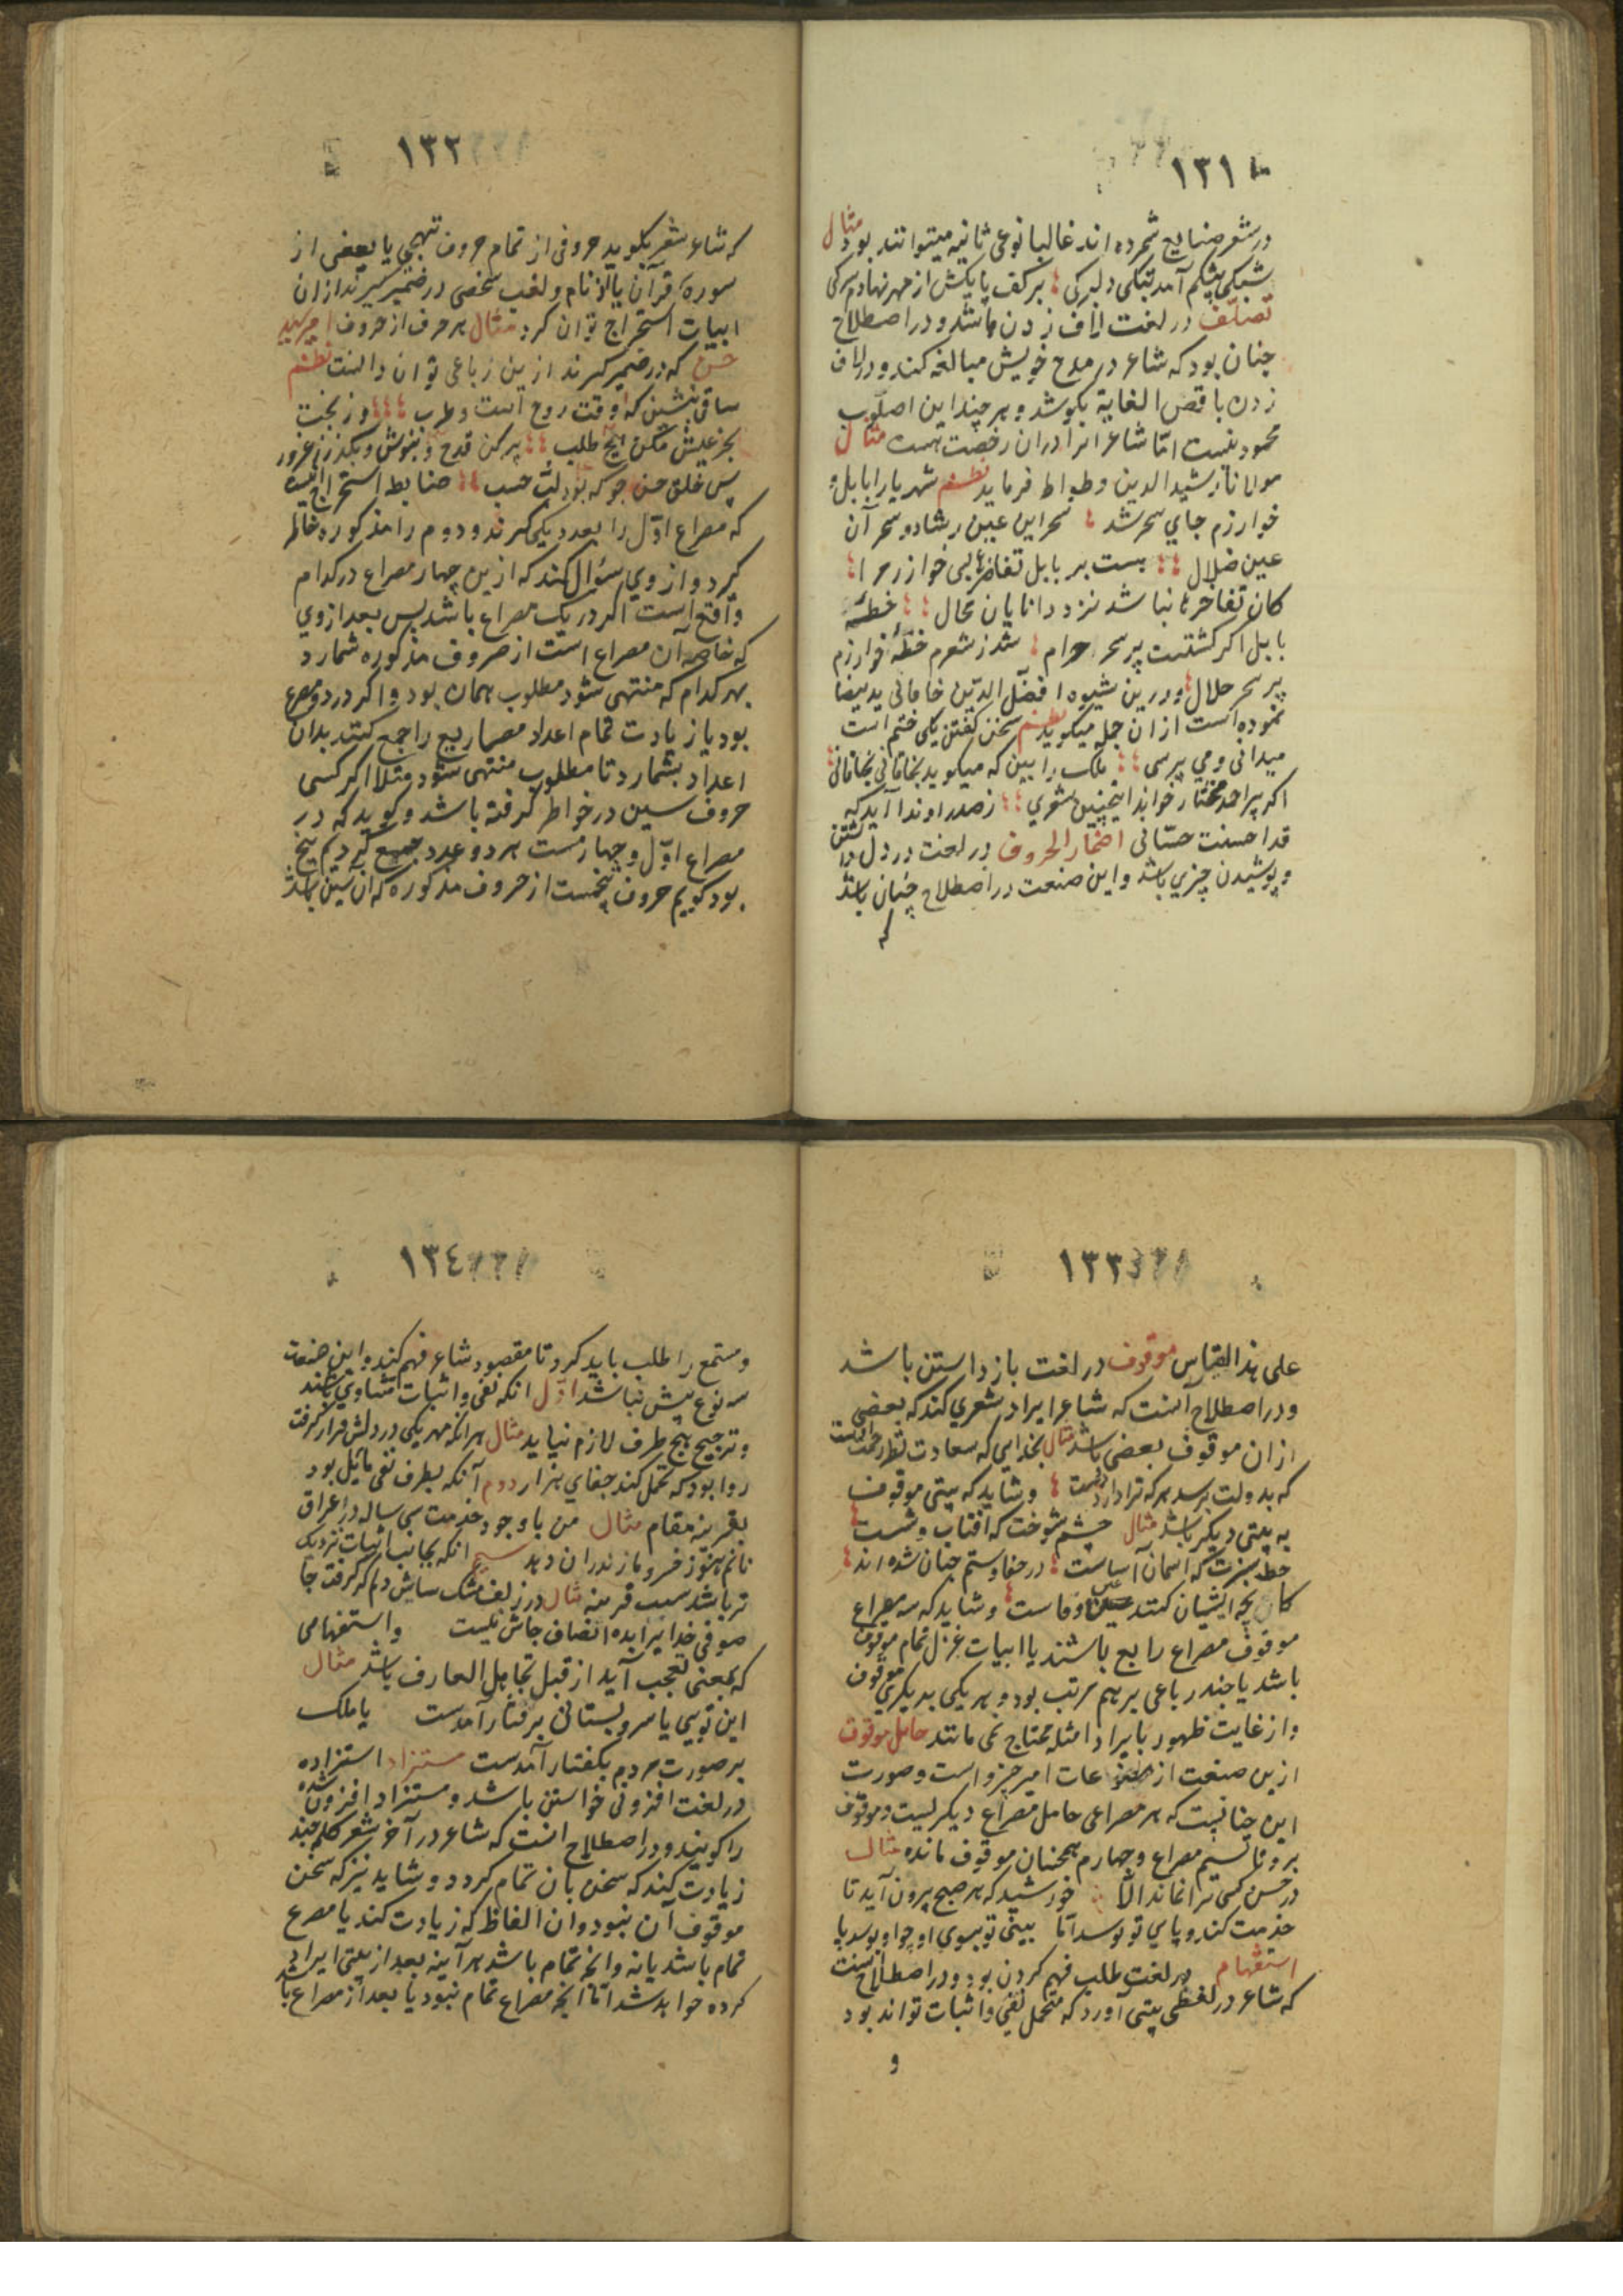 ١٣١
در شعر صنایع شمرده اند غالبا نوعی ثانیه میتوانند بود مثال
شبکی پیشکم آمد بتکی دلبرکی برکف پایکش از مهر نهادم سرکی
تصلّف در لغت لاف زدن باشد و در اصطلاح
چنان بود که شاعر در مدح خویش مبالغه کند و در لاف
زدن باقصی الغایة بکوشد و هر چند این اسلوب
محمود نیست امّا شاعرانرا در ان رخصت هست مثال
مولانا رشید الدین وطواط فرماید نظم شهر یارا بابل و
خوارزم جای سحر شد سحر این عین رشاد و سحر آن
عین ضلال هست بر بابل تفاخرها پی خوارزم را
کان تفاخرها نباشد نزد دانایان محال خطّهٔ
بابل اکر کشتست پر سحر حرام شد ز شعرم خطّهٔ خوارزم
پر سحر حلال و درین شیوه افضل الدّین خاقانی ید بیضا
نموده است از ان جمله میکوید نظم سخن کفتن بکی ختم است
میدانی و می پرسی ملک را بین که میکوید بخاقانی بخاقانی
اکر پیر احمد مختار خواند اینچنین شعری ز صدر او ندا آید که
قد احسنت حسّانی اضمار الحروف در لغت در دل داشتن
و پوشیدن چیزی باشد و این صنعت در اصطلاح چنان باشد
که
١٣٢
که شاعر شعر بکوید حروفی از تمام حروف تهجی یا بعضی از
سورهٔ قرآن یا از نام و لقب شخصی در ضمیر کیرند از ان
ابیات استخراج توان کرد مثال هر حرف از حروف امیر سید
حسن که در ضمیر کیرند ازین رباعی توان دانست نظم
ساقی بنشین که وقت روح است و طرب وز بخت
بجز عیش مکن هیچ طلب پر کن قدح و بنوش و بکذر ز غرور
پس خلق حسن جو که بود لبّ حسب ضابط استخراج اینست
که مصراع اوّل را بعدد یکی کیرند و دوم را مذکوره خاطر
کیرد و از وی سؤال کند که ازین چهار مصراع در کدام
واقع است اکر در یک مصراع باشد پس بعد از وی
که خاصهٔ آن مصراع است از حروف مذکوره شمارد
بهر کدام که منتهی شود مطلوب همان بود و اکر در دو مصرع
بود یا زیادت تمام اعداد مصاریع را جمع کنند بدان
اعداد بشمارد تا مطلوب منتهی شود مثلا اکر کسی
حروف سین در خواطر کرفته باشد و کوید که در
مصراع اوّل و چهارمست هر دو عدد جمع کردیم پنج
بود کوییم حروف پنجمست از حروف مذکوره که ان سین باشد
١٣٣
علی هذا القیاس موقوف در لغت باز داستن باشد
و در اصطلاح آنست که شاعر ایراد شعری کند که بعضی
از ان موقوف بعضی باشد مثال بخدایی که سعادت نظر رحمت اوست
که بدولت برسد هر که ترا دارد دوست و شاید که بیتی موقوف
به بیتی دیکر باشد مثال چشم شوخت که افتاب وشست
خط سبزت که اسمان آساست در جفا و ستم چنان شده اند
کانچه ایشان کنند عین وفاست و شاید که سه مصراع
موقوف مصراع رابع باشند یا ابیات غزل تمام موقوف
باشد یا چند رباعی بر هم مرتب بود و هر یکی بدیکری موقوف
و از غایت ظهور بایراد امثله محتاج نمی مانند حامل موقوف
ازین صنعت از مخترعات امیر خسرو است و صورت
این چنانست که هر مصراعی حامل مصراع دیکریست و موقوف
بر و تا سیم مصراع و چهارم همچنان موقوف مانده مثال
در حسن کسی ترا نماند الّا خورشید که هر صبح برون آید تا
خدمت کند و پای تو بوسد امّا بینی تو بسوی او چو او بوسد پا
استفهام در لغت طلب فهم کردن بود و در اصطلاح آنست
که شاعر در لفظی بیتی آورد که متحمل نفی و اثبات تواند بود
و
١٣٤
و مستمع را طلب باید کرد تا مقصود شاعر فهم کند و این صنعت
سه نوع بیش نباشد اوّل انکه نفی و اثبات متساوی باشند
و ترجیح هیچ طرف لازم نیاید مثال هرانکه مهر یکی در دلش قرار کرفت
روا بود که تحمل کند جفای هزار دوم آنکه بطرف نفی مائل بود
بقرینه مقام مثال من با وجود خدمت سی ساله در عراق
نانم هنوز خسرو مازندران دهد سیم انکه بجانب اثبات نزدیک
تر باشد سبب قرینه مثال در زلف مشک سایش دلم که کرفت جا
صوفی خدایرا بده انصاف جاش نیست واستفهامی
که بمعنی تعجب آید از قبل تجاهل العارف باشد مثال
این تویی یا سرو بستانی برفتار آمدست یا ملک
بر صورت مردم بکفتار آمدست مستزاد استزاده
در لغت افزونی خواستن باشد و مستزاد افزون شده
را کویند و در اصطلاح انست که شاعر در آخر شعر کلمه چند
زیادت کند که سخن بان تمام کردد و شاید نیز که سخن
موقوف آن نبود و ان الفاظ که زیادت کند یا مصرع
تمام باشد یا نه وانچه تمام باشد هر آینه بعد از بیتی ایراد
کرده خواهد شد امّا انچه مصراع تمام نبود یا بعد از مصراع باشد